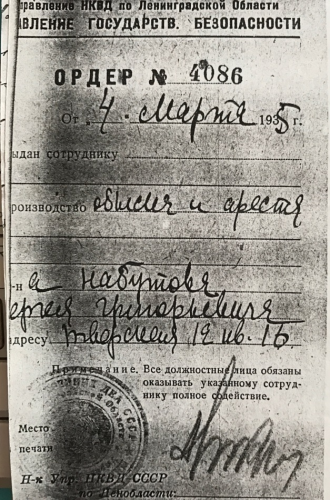 правление НКВД по Ленинградской Области
АВЛЕНИЕ ГОСУДАРСТВ. БЕЗОПАСНОСТИ
ОРДЕР № 4086
От „4. Марта 1935 г.
ыдан сотруднику
роизводство обыска и ареста
-на Набутова
ергея Григорьевича
адресу Тверская 12 кв. 16
Примечание. Все должностные лица обязаны
оказывать указанному сотруд-
нику полное содействие.
Место
печати
Н-к Упр. НКВД СССР
по Ленобласти: